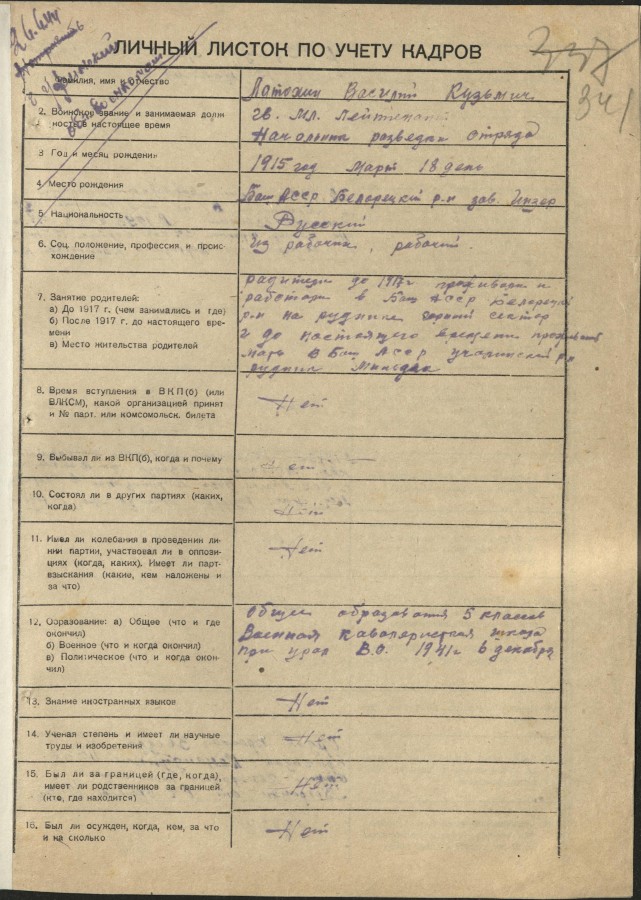 26.6.44
337
341
ЛИЧНЫЙ ЛИСТОК ПО УЧЕТУ КАДРОВ
Фамилия, имя и отчество
Василий Кузьмич
2. Воинское звание и занимаемая долж
ность в настоящее время
гв. мл. лейтенант
Начальник разведки отряда
3 Год и месяц рождения
1915 год Март 18 день
4 Место рождения
Баш АССР Белорецкий р-н зав. Инзер
5 Национальность
Русский
6. Соц. положение, профессия и проис-
хождение
Из рабочих, рабочий
7. Занятие родителей:
а) До 1917 г. (чем занимались и где)
б) После 1917 г. до настоящего вре-
мени
в) Место жительства родителей
родители до 1917 г проживали и
работали в Баш АССР Белорецкий
р-н на руднике
и до настоящего времени
мать в Баш АССР учалинский р-н
рудник Миндяк
8. Время вступления в ВКП(б) (или
ВЛКСМ), какой организацией принят
и № парт. или комсомольск. билета
Нет
9. Выбывал ли из ВКП(б), когда и почему
Нет
10. Состоял ли в других партиях (каких,
когда)
Нет
11. Имел ли колебания в проведении ли-
нии партии, участвовал ли в оппози-
циях (когда, каких). Имеет ли парт-
взыскания (какие, кем наложены и
за что)
Нет
12. Образование: а) Общее (что и где
окончил)
б) Военное (что и когда окончил)
в) Политическое (что и когда окон-
чил)
Общее образования 5 классов
Военная кавалерийская школа
при урал В.О. 1941г 6 декабря
13. Знание иностранных языков
Нет
14. Ученая степень и имеет ли научные
труды и изобретения
Нет
15. Был ли за границей (где, когда),
имеет ли родственников за границей
(кто, где находится)
Нет
16. Был ли осужден, когда, кем, за что
и на сколько
Нет